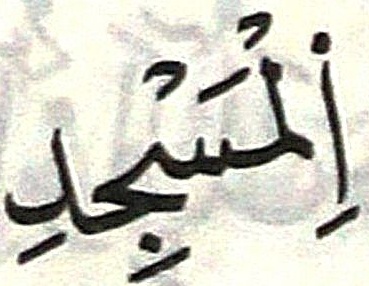 اِلْمَسْجِدِ